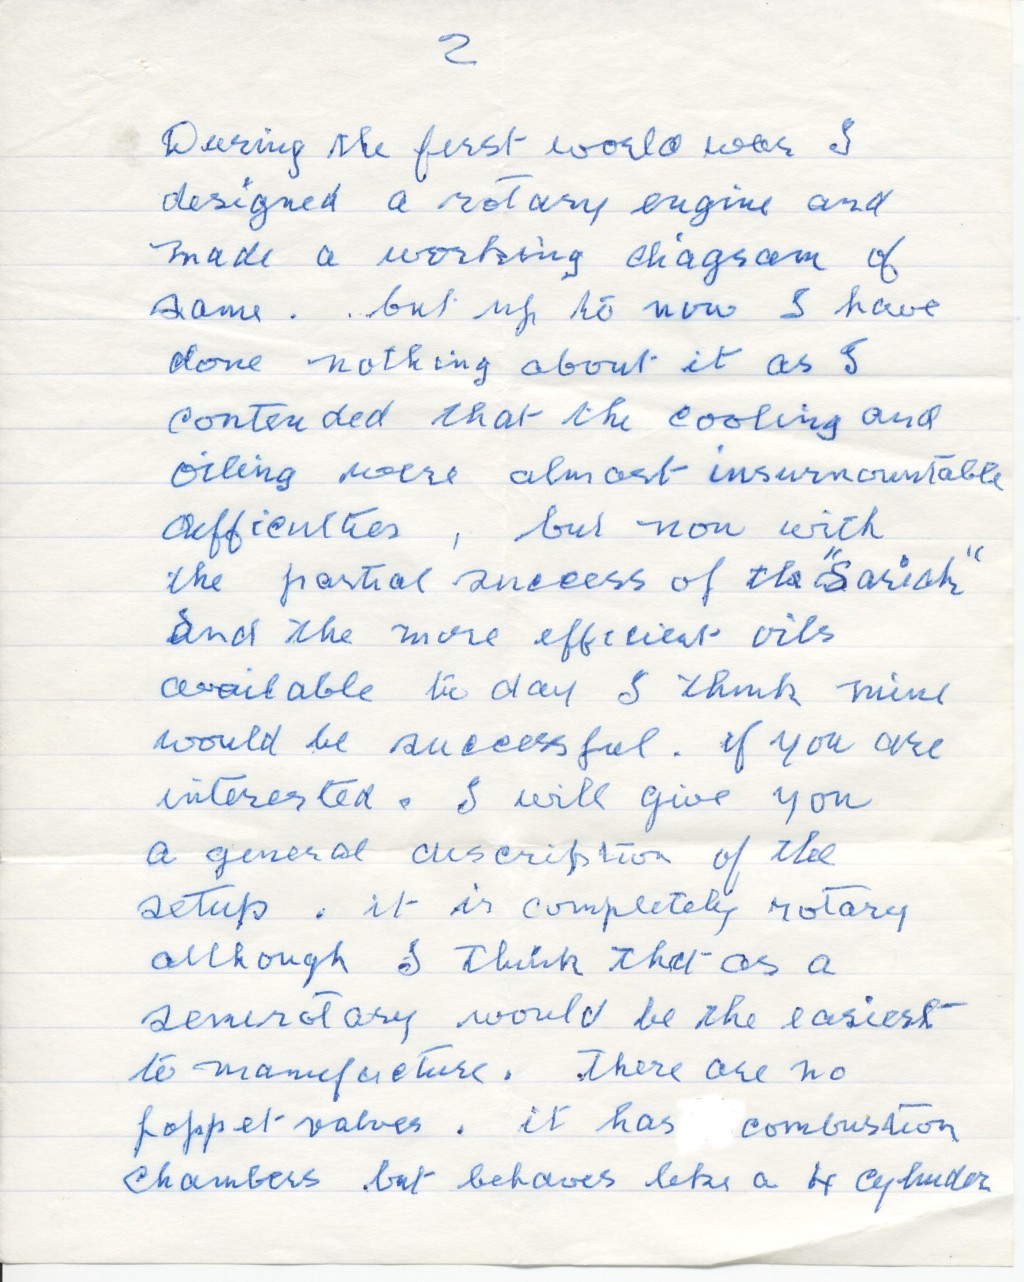 2
During the first world war I
designed a rotary engine and
made a working diagram of
same . . but up to now I have
done nothing about it as I
contended that the cooling and
oiling were almost insurmountable
difficulties , but now with
the partial success of the "Sarich"
and the more efficient oils
available to day I think mine
would be successful . if you are
interested . I will give you
a general description of the
setup . it is completely rotary
although I think that as a
semirotary would be the easiest
to manufacture . There are no
poppet valves . it has combustion
chambers but behaves like a 4 cylinder